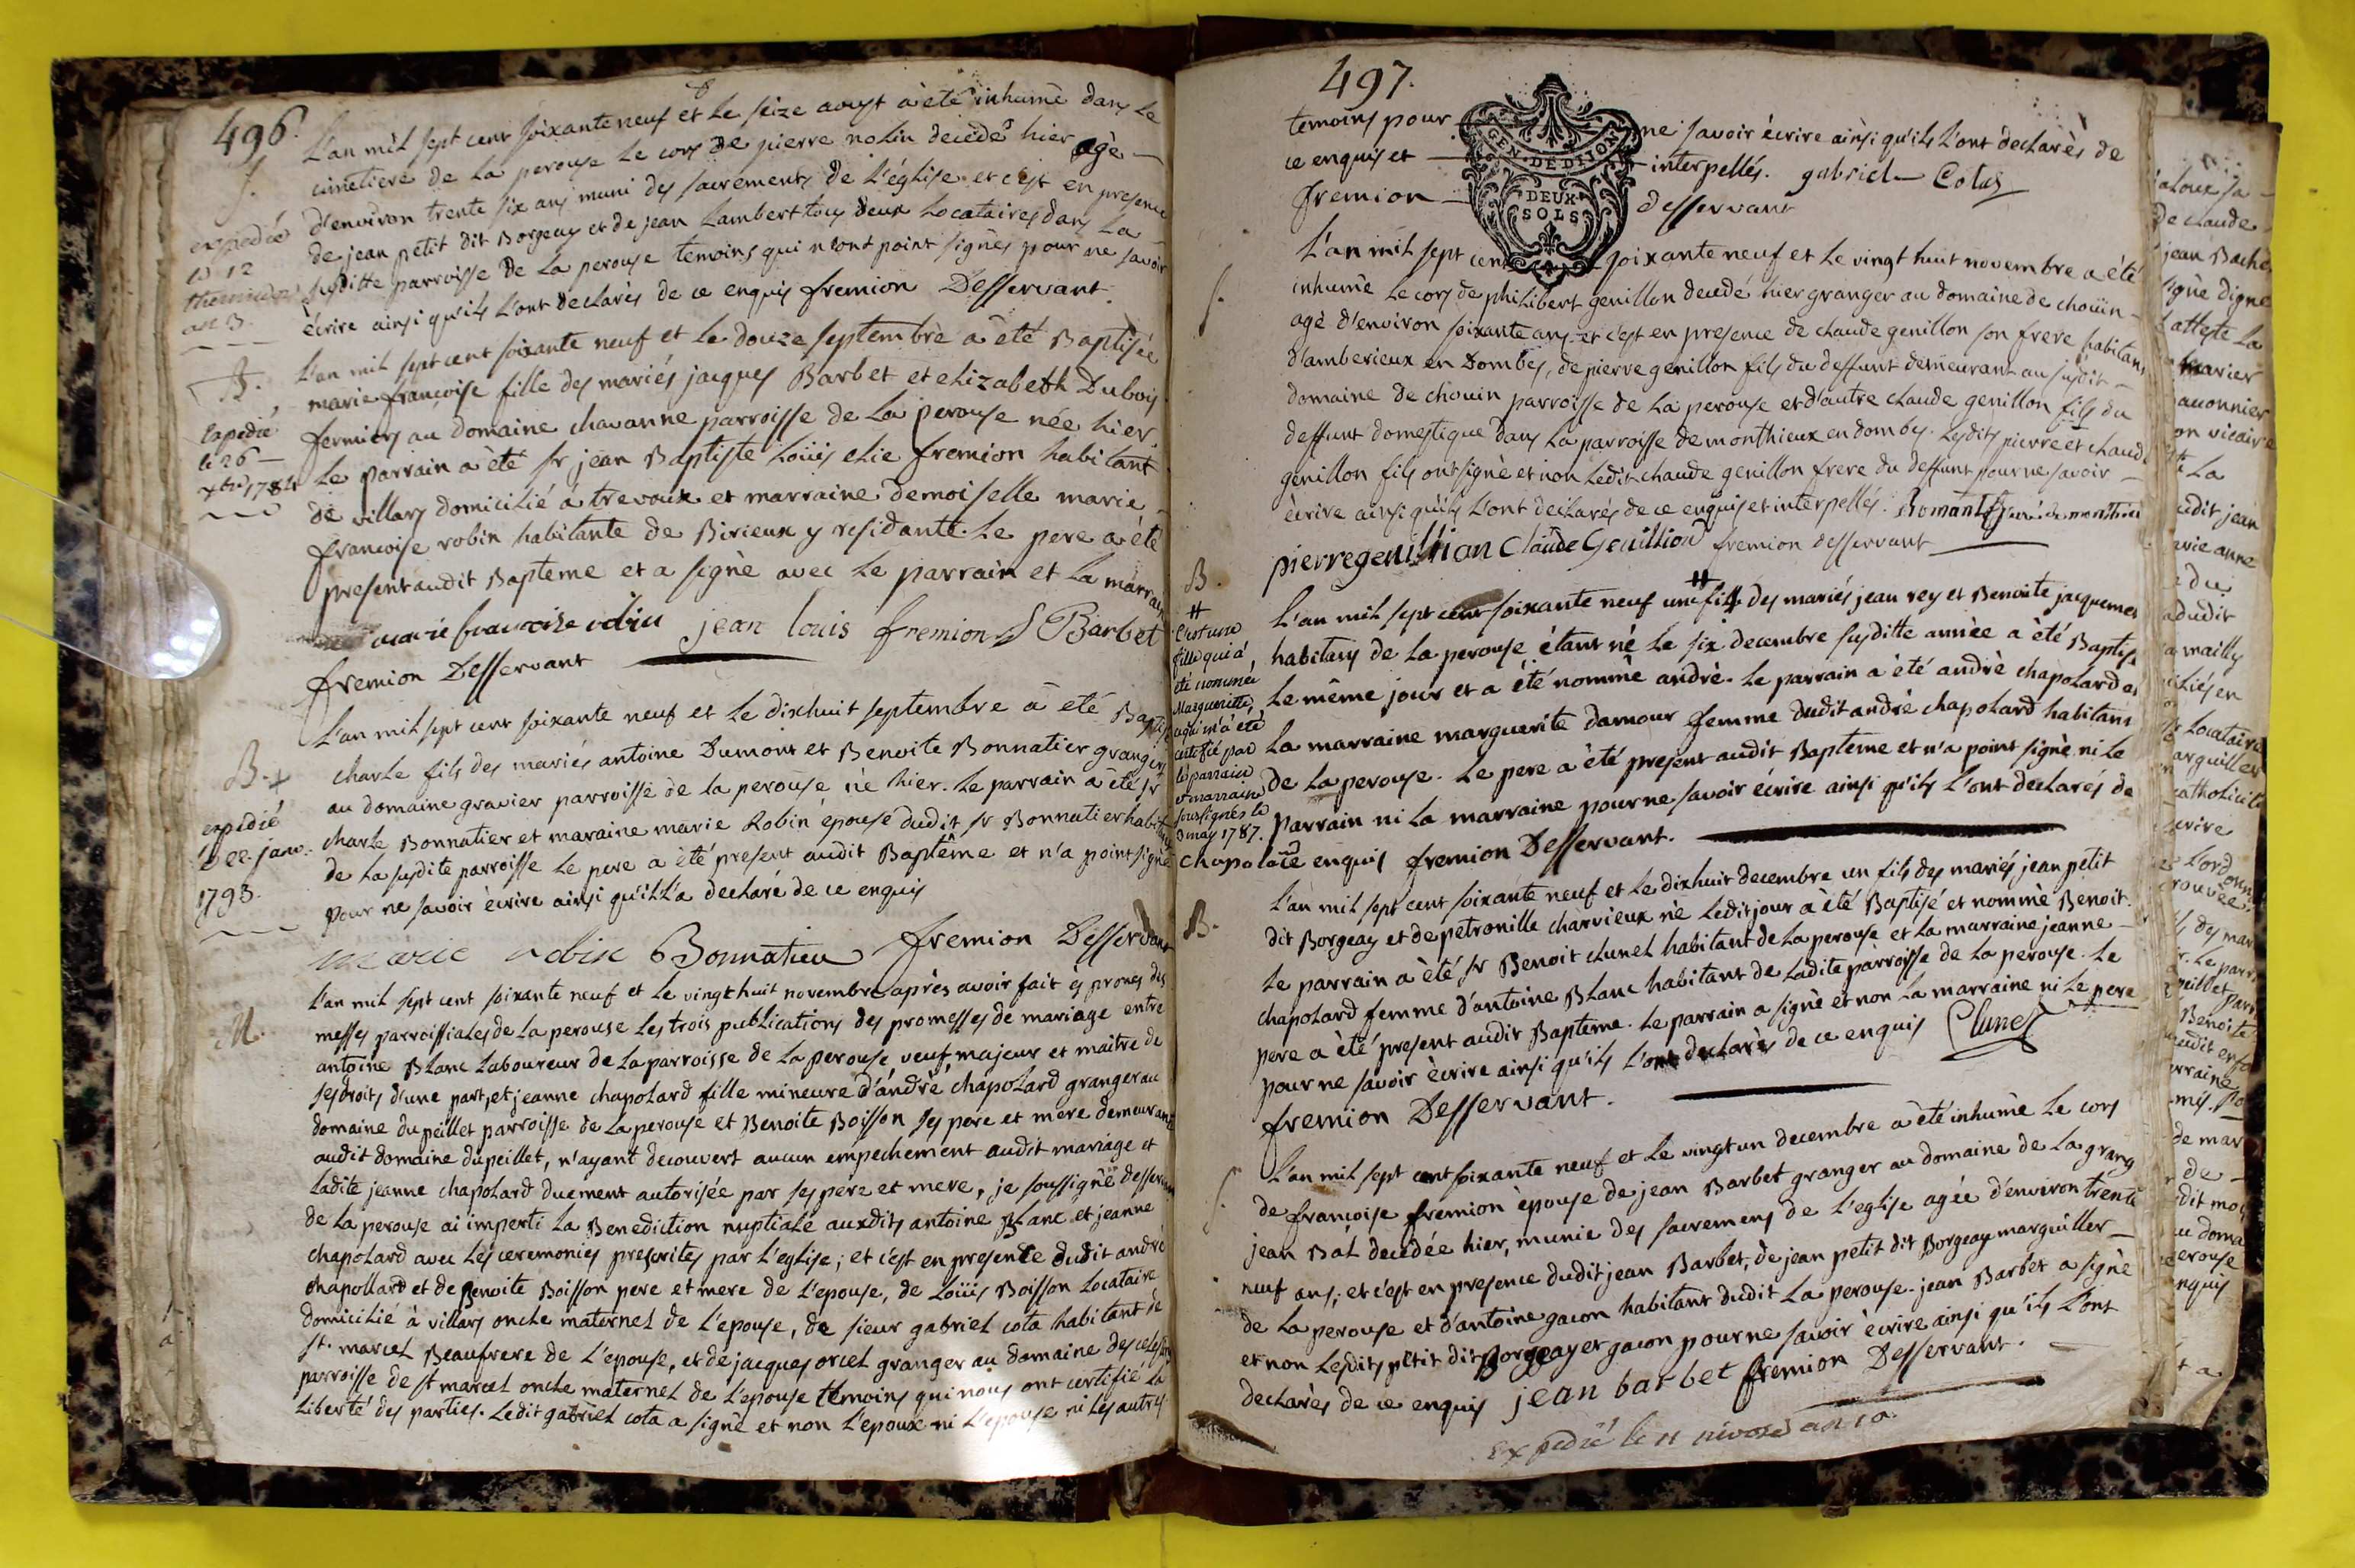 496.
L'an mil sept cent soixante neuf et le seize aoust à été inhumé dans le
S.
cimetiere de la perouse le cors de pierre nolin decedé hier agé
d'environ trente six ans muni des sacrements de l'église et c'est en presence
expedié
le 12
thermidor
an 3.
de jean petit dit Borgeay et de jean Lambert tous deux Locataires dans la
susditte parroisse de la perouse temoins qui n'ont point signés pour ne savoir
écrire ainsi qu'ils l'ont declarés de ce enquis fremion Desservant.
B.
L'an mil sept cent soixante neuf et le douze septembre à été Baptisée
marie françoise fille des mariés jacques Barbet et elizabeth Dubois
Expedié
le 26
xbre 1784
fermiers au domaine chavanne parroisse de la perouse née hier.
le parrain à été sr jean Baptiste Loüis elie fremion habitant
de villars domicilié à trevoux et marraine demoiselle marie
francoise robin habitante de Birieux y residante. Le pere à été
present audit Bapteme et a signé avec le parrain et la marraine
marie francoise robin jean louis fremion J Barbet
fremion Desservant
L'an mil sept cent soixante neuf et le dixhuit septembre à été Baptisé
B. +
charle fils des mariés antoine Dumont et Benoite Bonnatier grangers
expedié
le 22. janv.
1793.
au domaine gravier parroisse de la perouse né hier. Le parrain à été sr
charle Bonnatier et maraine marie Robin épouse dudit sr Bonnatier habitans
de la susdite parroisse le pere a été present audit Baptême et n'a point signé
pour ne savoir écrire ainsi qu'il l'a declaré de ce enquis
marie robin Bonnatier fremion Desservant
M.
L'an mil sept cent soixante neuf et le vingt huit novembre après avoir fait és prones des
messes parroissiales de la perouse les trois publications des promesses de mariage entre
antoine Blanc Laboureur de la parroisse de la perouse, veuf majeur et maitre de
ses droits d'une part, et jeanne chapolard fille mineure d'andré chapolard granger au
domaine du peillet parroisse de la perouse et Benoite Boisson ses pere et mere demeurans
audit domaine dupeillet, n'ayant decouvert aucun empechement audit mariage et
ladite jeanne chapolard duement autorisée par ses pere et mere, je soussigné desservant
de la perouse ai imperti la Benediction nuptiale auxdits antoine Blanc et jeanne
chapolard avec les ceremonies prescrites par l'eglise; et c'est en presence dudit andré
chapollard et de Benoite Boisson pere et mere de l'epouse, de Loüis Boisson Locataire
domicilié à villars oncle maternel de l'epouse, de sieur gabriel cota habitant de
st. marcel Beaufrere de l'epouse, et de jacques orcel granger au domaine des
parroisse de st marcel oncle maternel de l'epouse temoins qui nous ont certifié la
liberté des parties. Ledit gabriel cota a signé et non l'epoux ni l'epouse ni les autres
497.
temoins pour ne savoir écrire ainsi qu'ils l'ont declarés de
ce enquis et interpellés. gabriel Colas
fremion desservant
GEN. DE DIJON
DEUX
SOLS
S.
L'an mil sept cent soixante neuf et le vingt huit novembre a été
inhumé le cors de philibert genillon decedé hier granger au domaine de choüin
agé d'environ soixante ans, et c'est en presence de claude genillon son frere habitans
d'amberieux en Dombes, de pierre genillon fils du deffunt demeurant au susdit
domaine de choüin parroisse de la perouse et d'autre claude genillon fils du
deffunt domestique dans la parroisse de monthieux en dombes. Lesdits pierre et claude
genillon fils ont signé et non ledit claude genillon frere du deffunt pour ne savoir
écrire ainsi qu'ils l'ont declarés de ce enquis et interpellés. Romant curé de monthieu
pierregenillion Claude Genillion fremion desservant
B.
#
C'est une
fille qui a
été nommée
Marguerite,
ce qui m'a été
certifié par
le parrain
et marraine
soussignés le
3 may 1787.
chapolard
#
L'an mil sept cent soixante neuf une fille des mariés jean rey et Benoite jacquemet
habitans de la perouse étant né le six decembre susditte année a été Baptisé
le même jour et a été nommé andré. le parrain a été andré chapolard et
la marraine marguerite damour femme dudit andré chapolard habitans
de la perouse. Le pere a été present audit Bapteme et n'a point signé ni le
parrain ni la marraine pour ne savoir écrire ainsi qu'ils l'ont declarés de
ce enquis fremion Desservant.
B.
L'an mil sept cent soixante neuf et le dixhuit decembre un fils des mariés jean petit
dit Borgeay et de petronille charvieux né ledit jour à été Baptisé et nommé Benoit.
le parrain a été sr Benoit clunel habitant de la perouse et la marraine jeanne
chapolard femme d'antoine Blanc habitant de ladite parroisse de la perouse. Le
pere a été present audit Bapteme. le parrain a signé et non la marraine ni le pere
pour ne savoir écrire ainsi qu'ils l'ont declarés de ce enquis Clunel
fremion Desservant.
S.
L'an mil sept cent soixante neuf et le vingt un decembre a été inhumé le cors
de françoise fremion épouse de jean Barbet granger au domaine de la grang
jean Bal decedée hier, munie des sacremens de l'eglise agée d'environ trente
neuf ans; et c'est en presence dudit jean Barbet, de jean petit dit Borgeay marguiller
de la perouse et d'antoine gacon habitant dudit la perouse. jean Barbet a signé
et non lesdits petit dit Borgeay et gacon pour ne savoir écrire ainsi qu'ils l'ont
declarés de ce enquis jean barbet fremion Desservant.
Expedié le 11 nivose an 10.